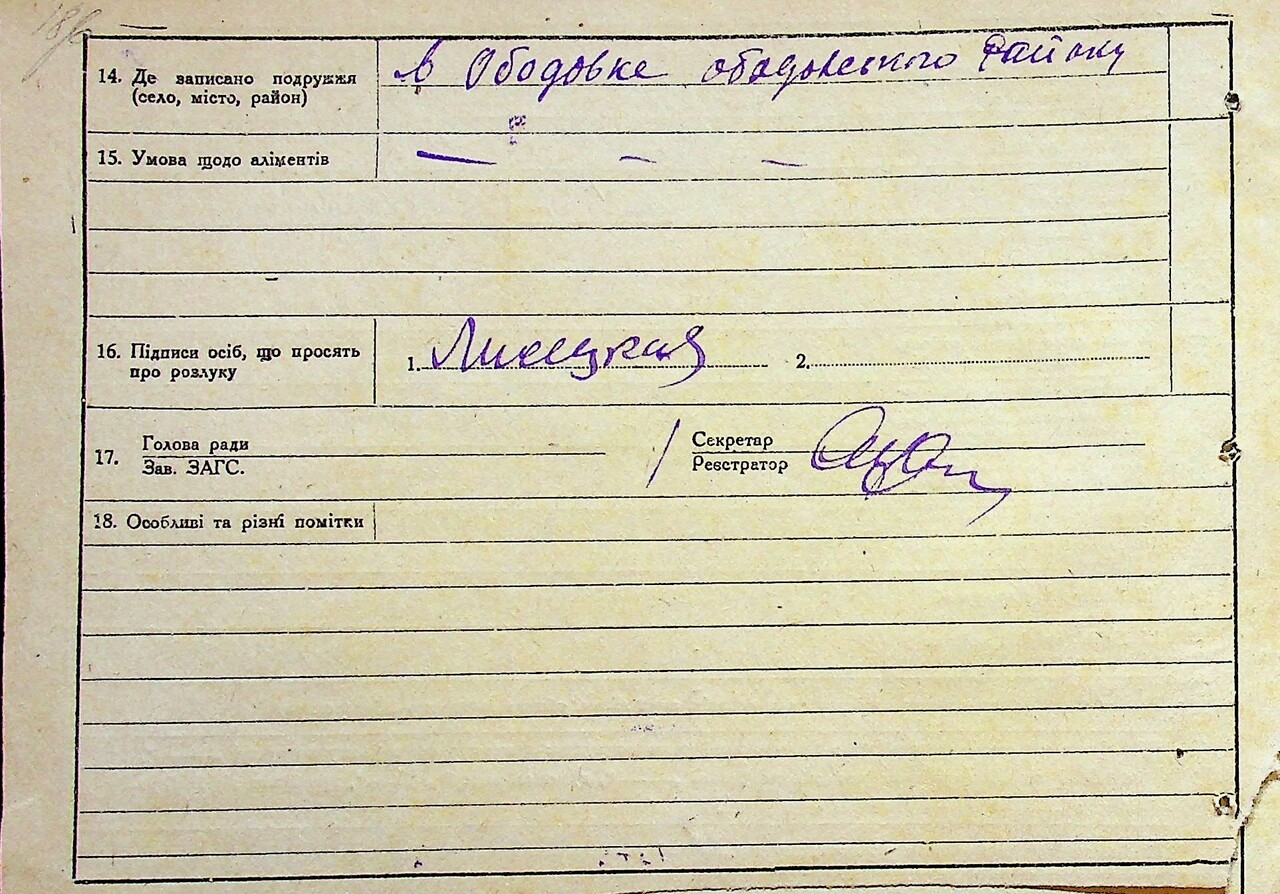 14. Де записано подружжя
(село, місто, район)
в Ободовке ободовського району
15. Умова щодо аліментів
— — —
16. Підписи осіб, що просять
про розлуку
1. 2.
17. Голова ради
Зав. ЗАГС.
Секретар
Реєстратор
18. Особливі та різні помітки